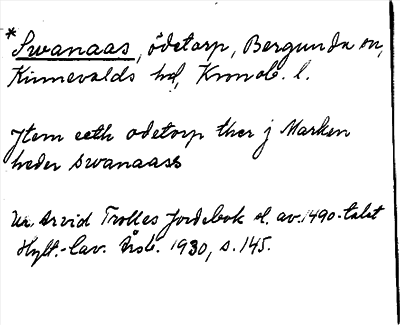 *Swanaas, ödetorp, Bergunda sn,
Kinnevalds hd, Kronob. l.
Jtem eeth odetorp ther j Marken
heder swanaass
Ur Arvid Trolles Jordebok sl. av 1490-talet
Hylt.-Cav. Årsb. 1930, s. 145.